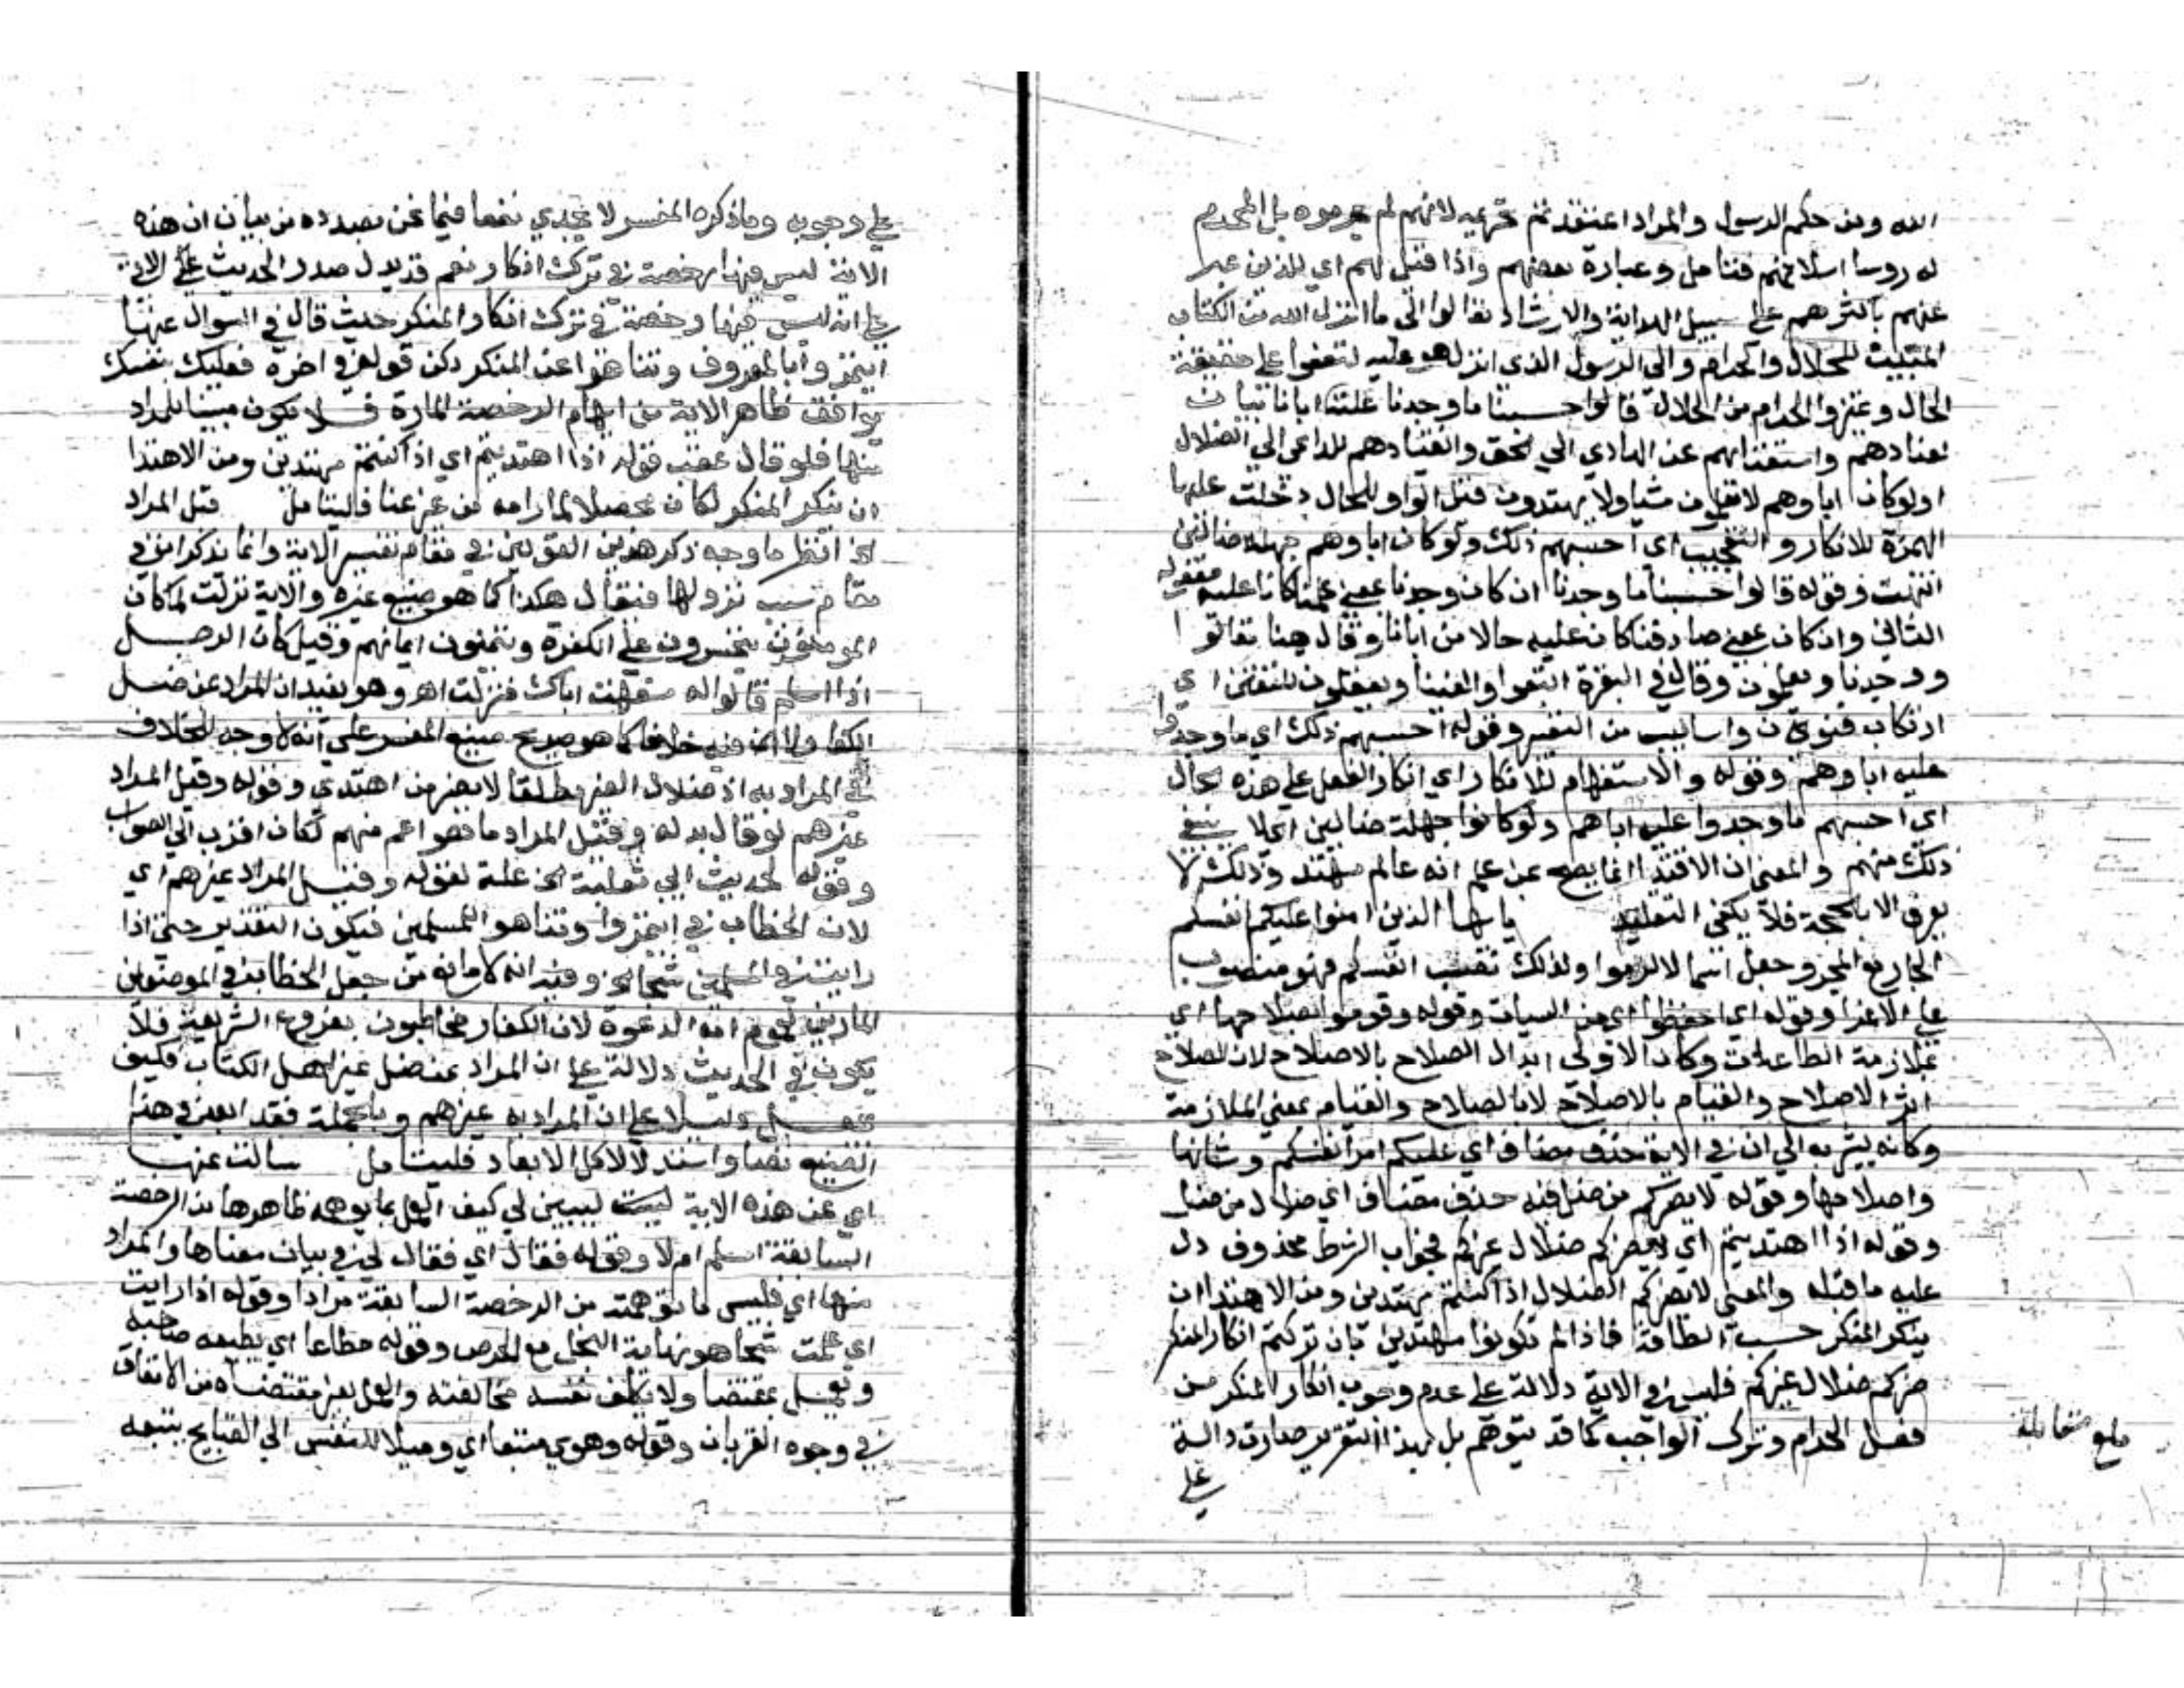 الله ومن حكم الرسول والمراد اعتقدتم تحريمه لانهم لم يحرموه بل المحرم
له روسا اسلافهم فتامل وعبارة بعضهم واذا قيل لهم اي للذين عبر
عنهم باكثرهم على سبيل الهداية والارشاد تعالوا الى ما انزل الله من الكتاب
المبين للحلال والحرام والى الرسول الذي انزل هو عليه لتقفوا على حقيقة
الحال وتميزوا الحرام من الحلال قالوا حسبنا ما وجدنا عليه اباناً بيان
لعنادهم واستعصائهم عن الهادي الى الحق وانقيادهم للداعي الى الضلال
اولو كان اباوهم لا يعلمون شيا ولا يهتدون قيل الواو للحال دخلت عليها
الهمزة للانكار والتعجيب اي احسبهم ذلك ولو كان اباوهم جهلة ضالين
انتهت وقوله قالوا حسبنا ما وجدنا ان كان وجدنا بمعنى علمنا كانا عليه مفعوله
الثاني وان كان بمعنى صادفنا كان عليه حالا من ابانا وقال هنا تعالوا
ووجدنا ويعلمون وقال في البقرة اتبعوا والفينا ويعقلون للتفنن اي
ارتكاب فنون واساليب من التعبير وقوله احسبهم ذلك اي ما وجدوا
عليه اباوهم وقوله والاستفهام للانكار اي انكار الفعل على هذه الحال
اي احسبهم ما وجدوا عليه اباهم ولو كانوا جهلة ضالين اي لا ينبغي
ذلك منهم والمعنى ان الاقتدا انما يصح عن علم انه عالم مهتد وذلك لا
يعرف الا بالحجة فلا يكفي التقليد يايها الذين امنوا عليكم انفسكم
الجار مع المجرور جعل اسما لالزموا ولذلك نصب انفسكم فهو منصوب
على الاغرا وقوله اي احفظوا اي من السيات وقوله وقوموا بصلاحها اي
بملازمة الطاعات وكان الاولى ابدال الصلاح بالاصلاح لان الصلاح
اثر الاصلاح والقيام بالاصلاح لا بالصلاح والقيام بمعنى الملازمة
وكانه يشير به الى ان في الاية حذف مضاف اي عليكم امر انفسكم وشانها
واصلاحها وقوله لا يضركم من ضل فيه حذف مضاف اي ضلال من ضل
وقوله اذا اهتديتم اي لا يضركم ضلال غيركم فجواب الشرط محذوف دل
عليه ما قبله والمعنى لا يضركم الضلال اذا كنتم مهتدين ومن الاهتدا ان
ينكر المنكر حسب الطاقة فاذا لم تكونوا مهتدين بان تركتم انكار المنكر
ضركم ضلال غيركم فليس في الاية دلالة على عدم وجوب انكار المنكر من
فعل الحرام وترك الواجب كما قد يتوهم بل بهذا التقرير صارت دالة
على
بلغ مقابلة
على وجوبه وما ذكره المفسر لا يجدي نفعا فيما نحن بصدده من بيان ان هذه
الاية ليس فيها رخصة في ترك انكار نعم قد يدل صدر الحديث على الاية
على انه ليس فيها رخصة في ترك انكار المنكر حيث قال في السوال عنها
ايتمروا بالمعروف وتناهوا عن المنكر لكن قوله في اخره فعليك بنفسك
يوافق ظاهر الاية من ايهام الرخصة المارة فلا يكون مبينا للمراد
منها فلو قال عقب قوله اذا اهتديتم اي اذا كنتم مهتدين ومن الاهتدا
ان ينكر المنكر لكان محصلا لما رامه من غير عنا فليتامل قيل المراد
الخ انظر ما وجه ذكر هذين القولين في مقام تفسير الاية وانما يذكران في
مقام سبب نزولها فيقال هكذا كما هو صنيع غيره والاية نزلت لما كان
المومنون يتحسرون على الكفرة ويتمنون ايمانهم وقيل كان الرجل
اذا اسلم قالوا له سفهت اباك فنزلت اهـ وهو يفيد ان المراد عن ضل
الكفار لا ان فيه خلافا كما هو صريح صنيع المفسر على انه لا وجه للخلاف
في المراد به اذ ضلال الغير مطلقا لا يضر من اهتدى وقوله وقيل المراد
غيرهم لو قال بدله وقيل المراد ما هو اعم منهم لكان اقرب الى الصواب
وقوله لحديث ابي ثعلبة الخ علة لقوله وقيل المراد غيرهم اي
لان الخطاب في ايتمروا وتناهوا للمسلمين فيكون التقدير حتى اذا
رايتم في المسلمين شحا الخ وفيه انه لا مانع من جعل الخطاب في الموضعين
المارين لعموم امة الدعوة لان الكفار مخاطبون بفروع الشريعة فلا
يكون في الحديث دلالة على ان المراد عن ضل غير اهل الكتاب فكيف
يجعل دليلا على ان المراد به غيرهم وبالجملة فقد ابعد في هذا
الصنيع نصا واستدلالا كل الابعاد فليتامل سالت عنها
اي عن هذه الاية ليبين لي كيف العمل بما يوهمه ظاهرها من الرخصة
السابقة اسلم ام لا وقوله فقال اي فقال لي في بيان معناها والمراد
منها اي فليس ما توهمته من الرخصة السابقة مرادا وقوله اذا رايت
اي علمت شحا هو نهاية البخل مع الحرص وقوله مطاعا اي يطيعه صاحبه
ويعمل بمقتضاه ولا يكلف نفسه مخالفته والعمل بغير مقتضاه من الانفاق
في وجوه القربات وقوله وهوى متبعا اي وميلا للنفس الى القبايح يتبعه